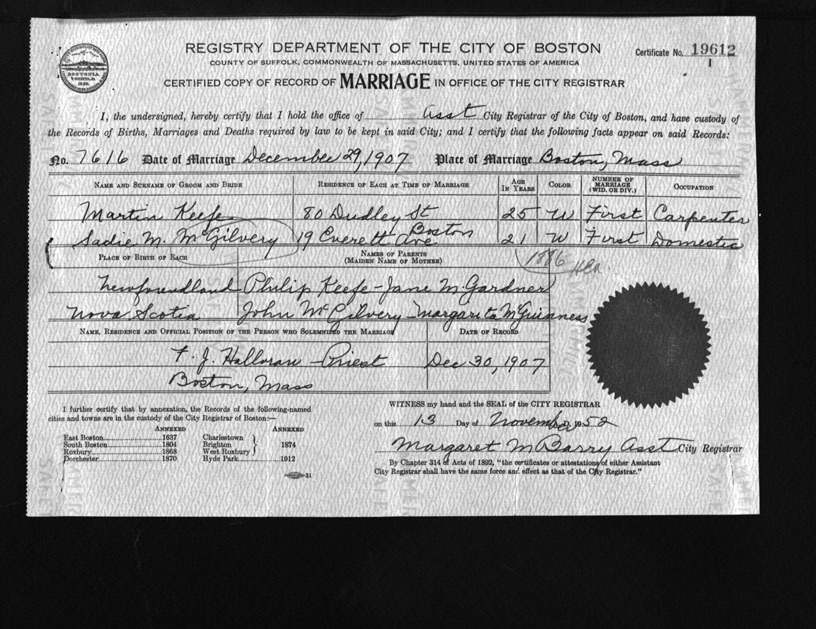 REGISTRY DEPARTMENT OF THE CITY OF BOSTON
COUNTY OF SUFFOLK, COMMONWEALTH OF MASSACHUSETTS, UNITED STATES OF AMERICA
Certificate No. 19612
1
CERTIFIED COPY OF RECORD OF MARRIAGE IN OFFICE OF THE CITY REGISTRAR
I, the undersigned, hereby certify that I hold the office of Asst City Registrar of the City of Boston, and have custody of
the Records of Births, Marriages and Deaths required by law to be kept in said City; and I certify that the following facts appear on said Records:
No. 7616 Date of Marriage December 29, 1907 Place of Marriage Boston, Mass
NAME AND SURNAME OF GROOM AND BRIDE RESIDENCE OF EACH AT TIME OF MARRIAGE AGE IN YEARS COLOR NUMBER OF MARRIAGE (WID. OR DIV.) OCCUPATION
Martin Keefe 80 Dudley St 25 W First Carpenter
Boston
Sadie M. McGilvery 19 Everett Ave 21 W First Domestic
1886
PLACE OF BIRTH OF EACH NAMES OF PARENTS (MAIDEN NAME OF MOTHER)
Newfoundland Philip Keefe - Jane M. Gardner
Nova Scotia John McGilvery - Margarita McGuinness
NAME, RESIDENCE AND OFFICIAL POSITION OF THE PERSON WHO SOLEMNIZED THE MARRIAGE DATE OF RECORD
F. J. Halloran - Priest Dec 30, 1907
Boston, Mass
I further certify that by annexation, the Records of the following-named
cities and towns are in the custody of the City Registrar of Boston:—
ANNEXED ANNEXED
East Boston 1637 Charlestown
South Boston 1804 Brighton 1874
Roxbury 1868 West Roxbury
Dorchester 1870 Hyde Park 1912
WITNESS my hand and the SEAL of the CITY REGISTRAR
on this 13 Day of November 1952
Margaret M Barry Asst City Registrar
By Chapter 314 of Acts of 1892, "the certificates or attestations of either Assistant
City Registrar shall have the same force and effect as that of the City Registrar."